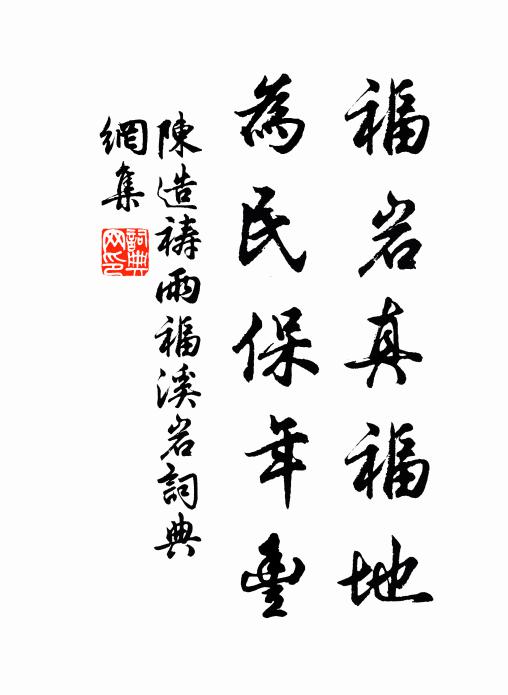 福岩真福地
為民保年豐
陳造禱雨福溪岩詞典
網集
詞典
网印